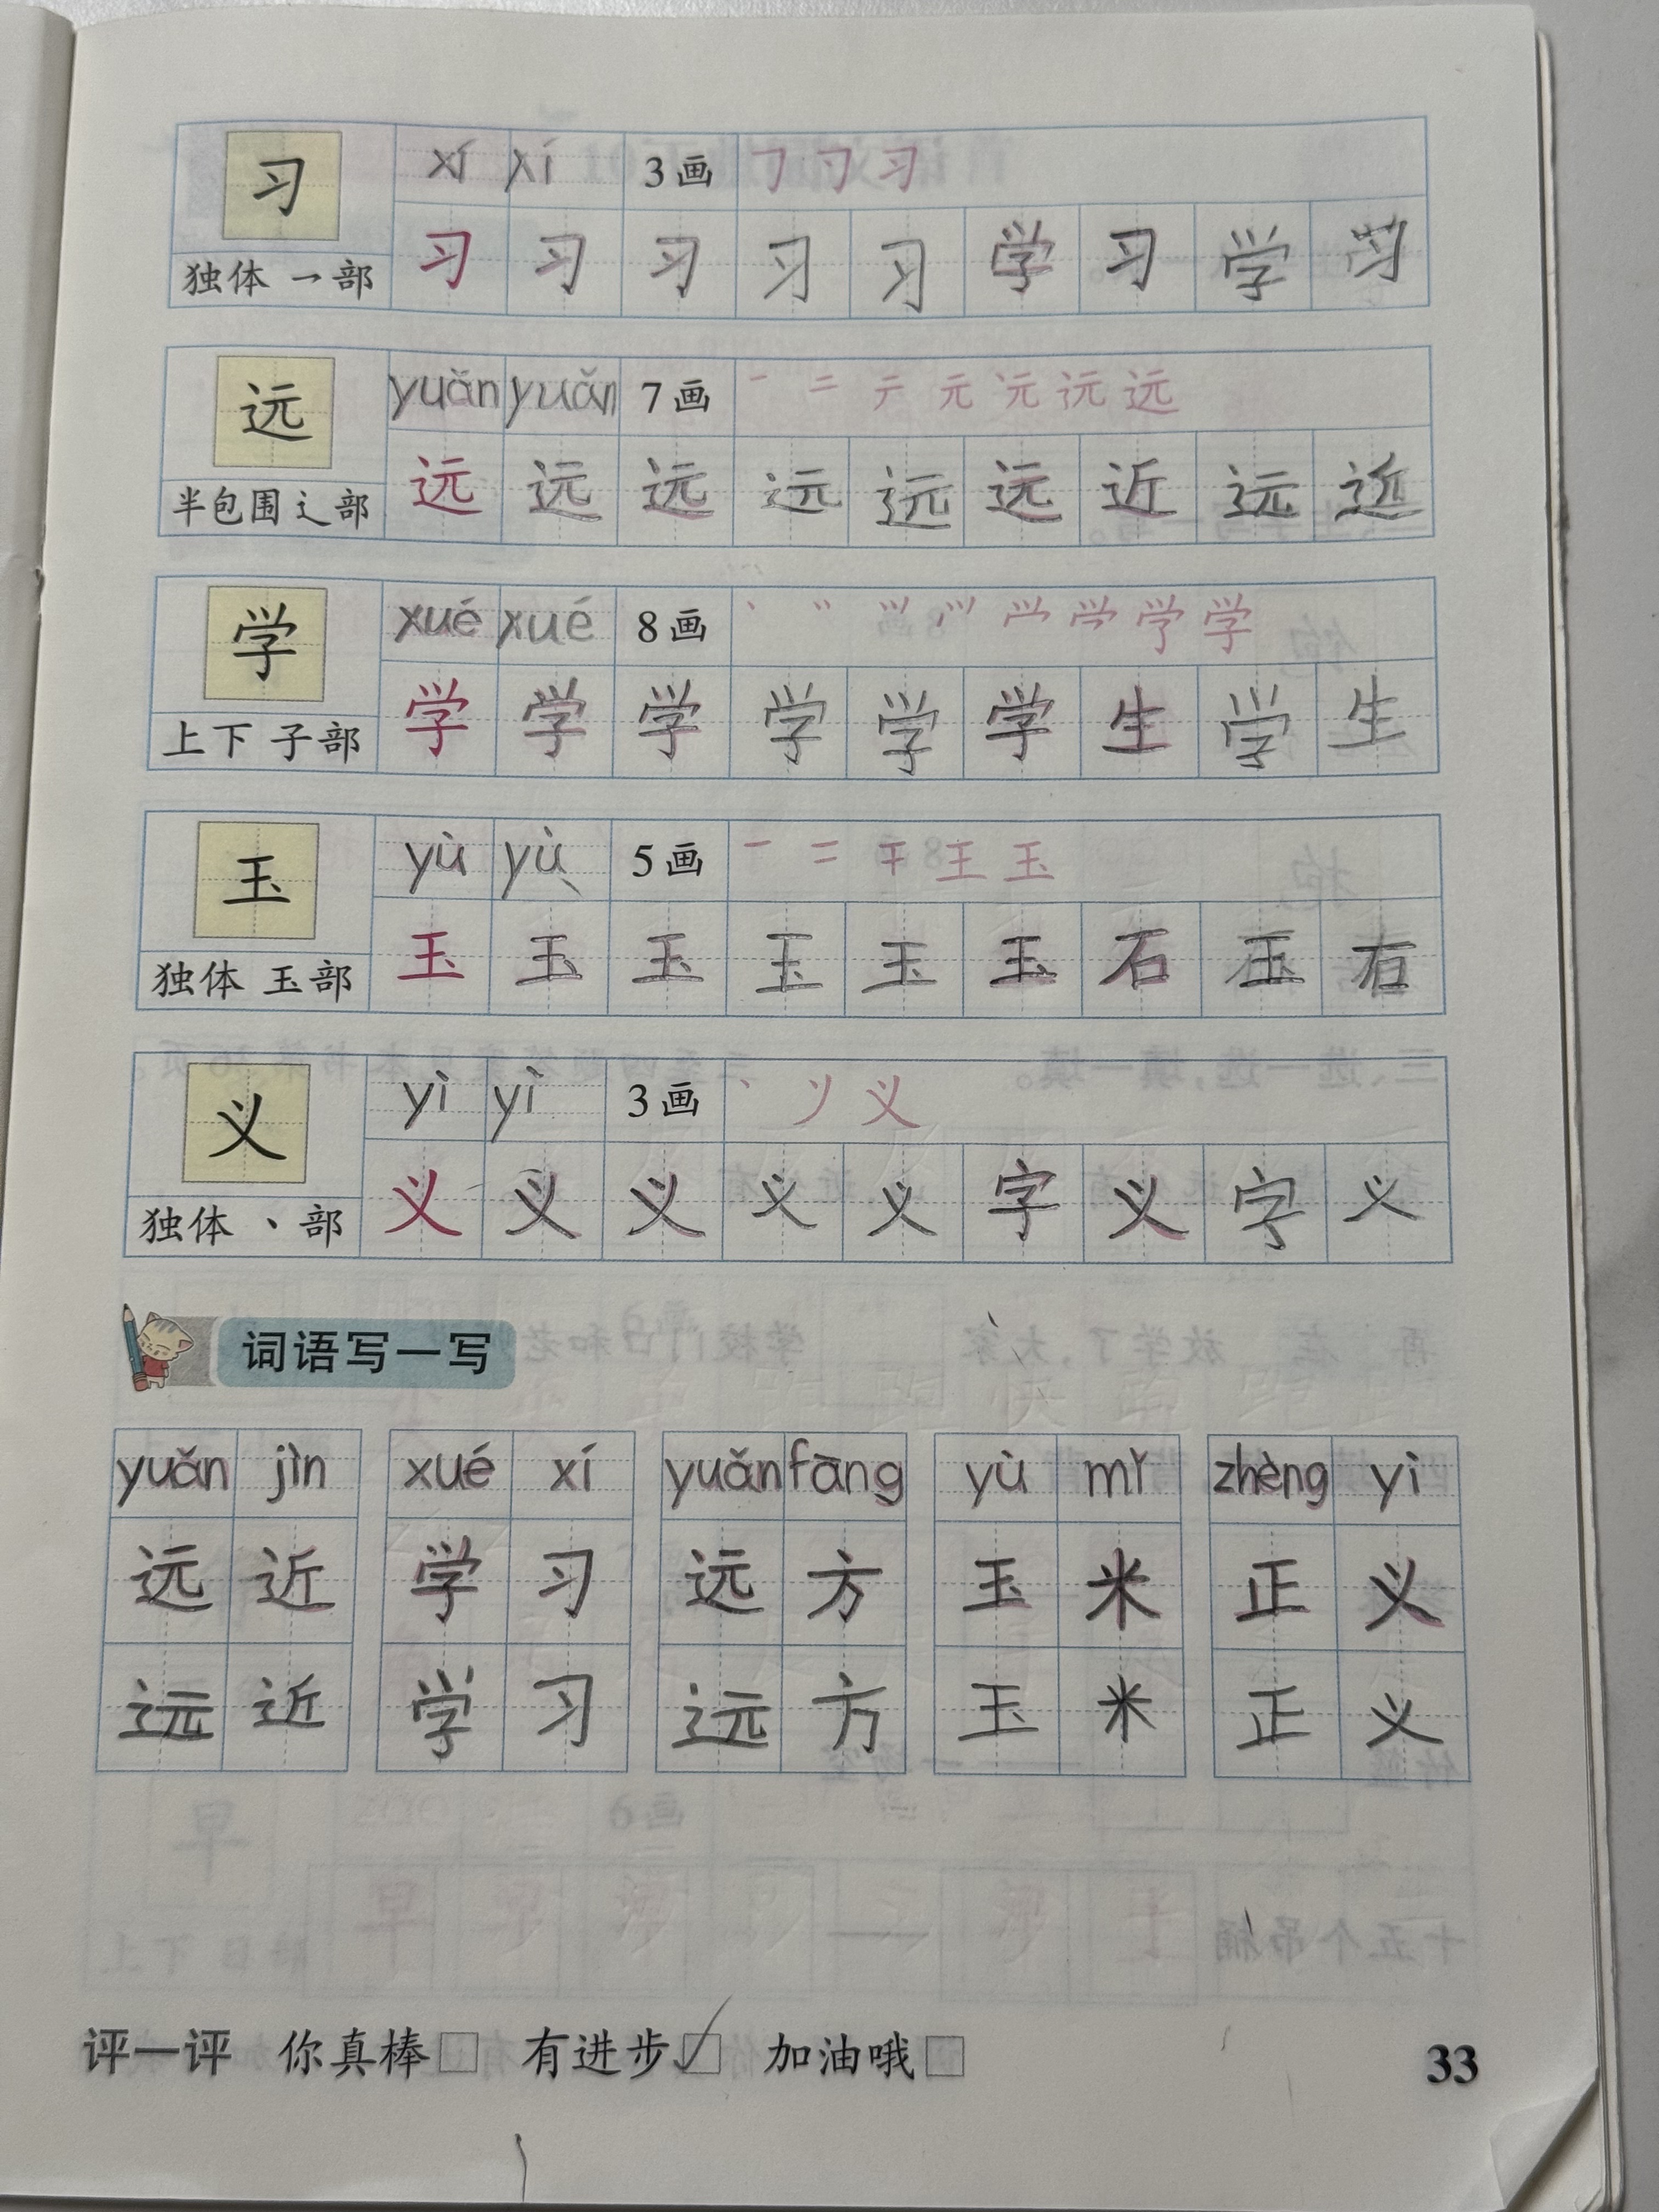 习 xí xí 3画 丁 习 习
独体 乛部 习 习 习 习 习 学 习 学 习
远 yuǎn yuǎn 7画 一 二 テ 元 沅 远 远
半包围 辶部 远 远 远 远 远 远 近 远 近
学 xué xué 8画 学
上下 子部 学 学 学 学 学 学 生 学 生
玉 yù yù 5画 一 二 干 王 玉
独体 玉部 玉 玉 玉 玉 玉 玉 石 玉 石
义 yì yì 3画 丶 丷 义
独体 丶部 义 义 义 义 义 字 义 字 义
词语写一写
yuǎn jìn xué xí yuǎn fāng yù mǐ zhèng yì
远 近 学 习 远 方 玉 米 正 义
远 近 学 习 远 方 玉 米 正 义
评一评 你真棒□ 有进步☑ 加油哦□ 33